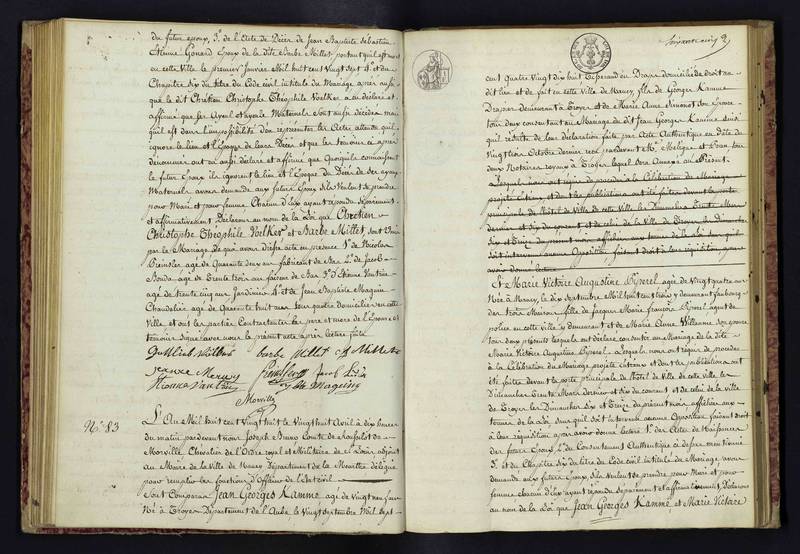 du futur époux, 3º de l'Acte de Décès de Jean Baptiste Sébastien
Etienne Gouard Epoux de la dite Barbe Millet portant qu'il est mort
en cette Ville le premier Janvier Mil huit cent Vingt Sept 4º et du
Chapitre Six du titre du Code civil intitulé du Mariage après aussi
que le dit Chrétien Christophe Théophile Voelker a eu déclaré et
affirmé que ses Ayeul et ayeule Maternels sont aussi décédés mais
qu'il est dans l'impossibilité d'en représenter les Actes attendu qu'il
ignore le lieu et l'Epoque de leurs Décès et que les témoins ci après
dénommés ont aussi déclaré et affirmé que quoiqu'ils connaissent
le futur Epoux ils ignorent le lieu et l'Epoque du Décès de ses ayeux
Maternels avons demandé aux futurs Epoux s'ils veulent se prendre
pour Mari et pour femme Chacun d'eux ayant répondu séparément
et affirmativement Déclarons au nom de la Loi que Chrétien
Christophe Théophile Voelker et Barbe Millet, sont Unis
par le Mariage De quoi avons dressé acte en présence 1º de Nicolas
âgé de Quarante deux ans fabricant de Bas 2º de Jacob
âgé de trente trois ans faiseur de Bas 3º d'Etienne Vautrin
âgé de trente cinq ans Jardinier 4º et de Jean Baptiste Maguin
Chandelier âgé de Quarante huit ans tous quatre domiciliés en cette
Ville et ont les parties Contractantes les père et mère de l'Epouse et
témoins signé avec nous le présent acte après lecture faite
barbe Millet
Jeanne
Jacob
Morville
Nº 83
L'An Mil huit cent Vingt huit le Vingt huit Avril à dix heures
du matin pardevant nous Joseph Comte de
Morville, Chevalier de l'Ordre royal et Militaire de St Louis adjoint
au Maire de la Ville de Nancy Département de la Meurthe délégué
pour remplir les fonctions d'Officier de l'Etat civil
Sont Comparus Jean Georges Kamme âgé de Vingt neuf ans
Né à Troyes Département de l'Aube le Vingt Septembre Mil Sept
cent quatre Vingt dix huit Tisserand en Draps domicilié de droit au
dit lieu et de fait en cette Ville de Nancy, fils de George Kamme
Drapier demeurant à Troyes et de Marie Anne Simonot son Epouse
tous deux consentant au Mariage du dit Jean George Kamme ainsi
qu'il résulte de leur déclaration faite par Acte Authentique en Date du
Vingt Octobre dernier reçu pardevant Me et son
Notaires royaux à Troyes lequel sera Annexé au Présent.
Lesquels nous ont requis de procéder à la Célébration du Mariage
projeté entr'eux et dont les publications ont été faites devant la porte
principale de l'hôtel de Ville de cette Ville les Dimanches Trente Mars
dernier et Six du courant et de celui de la Ville de Troyes les Dimanches
Six et Treize du présent mois affichées aux termes de la Loi sans qu'il
soit intervenu aucune Opposition faisant droit à leur réquisition après
avoir donné lecture
Et Marie Victoire Augustine âgée de Vingt quatre ans
Née à Nancy, le dix Septembre Mil huit cent trois y demeurant faubourg
des trois Maisons fille de Jacques Marie François agent de
police en cette Ville y demeurant et de Marie Anne Villaume son épouse
tous deux présents lesquels ont déclaré consentir au Mariage de la dite
Marie Victoire Augustine Lesquels nous ont requis de procéder
à la Célébration du Mariage projeté entr'eux et dont les publications ont
été faites devant la porte principale de l'hôtel de Ville de cette Ville les
Dimanches Trente Mars dernier et Six du courant et de celui de la Ville
de Troyes les Dimanches Six et Treize du présent mois affichées aux
termes de la Loi sans qu'il soit intervenu aucune Opposition faisant droit
à leur réquisition après avoir donné lecture 1º des Actes de Naissance
des futurs Epoux, 2º du Consentement Authentique ci dessus mentionné
3º et du Chapitre Six du titre du Code civil intitulé du Mariage avons
demandé aux futurs Epoux, s'ils veulent se prendre pour Mari et pour
femme chacun d'eux ayant répondu séparément et affirmativement, Déclarons
au nom de la Loi que Jean Georges Kamme et Marie Victoire